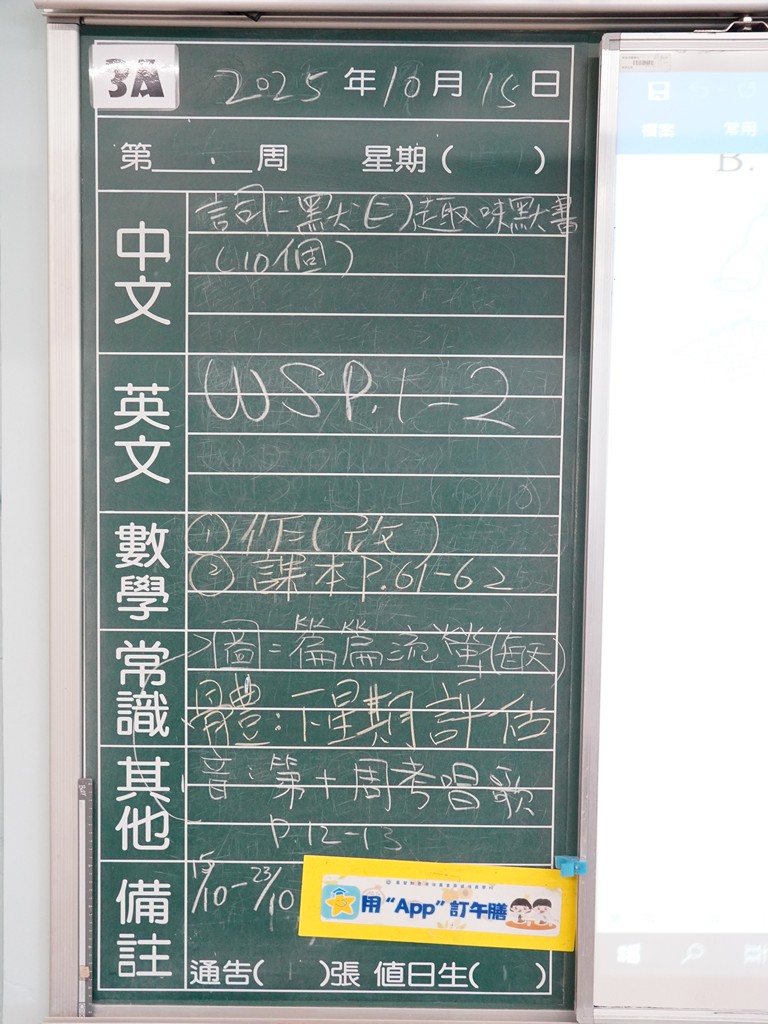 3A
2025年10月15日
第 周 星期( )
中文
詞:默(E)趣味默書
(10個)
英文
WS P.1-2
數學
①作(改)
②課本P.61-62
常識
圖:篇篇流螢(每天)
體:下星期評估
其他
音:第十周考唱歌
P.12-13
備註
15/10-23/10
用“App”訂午膳
通告( )張 值日生( )
B.
檔案 常用